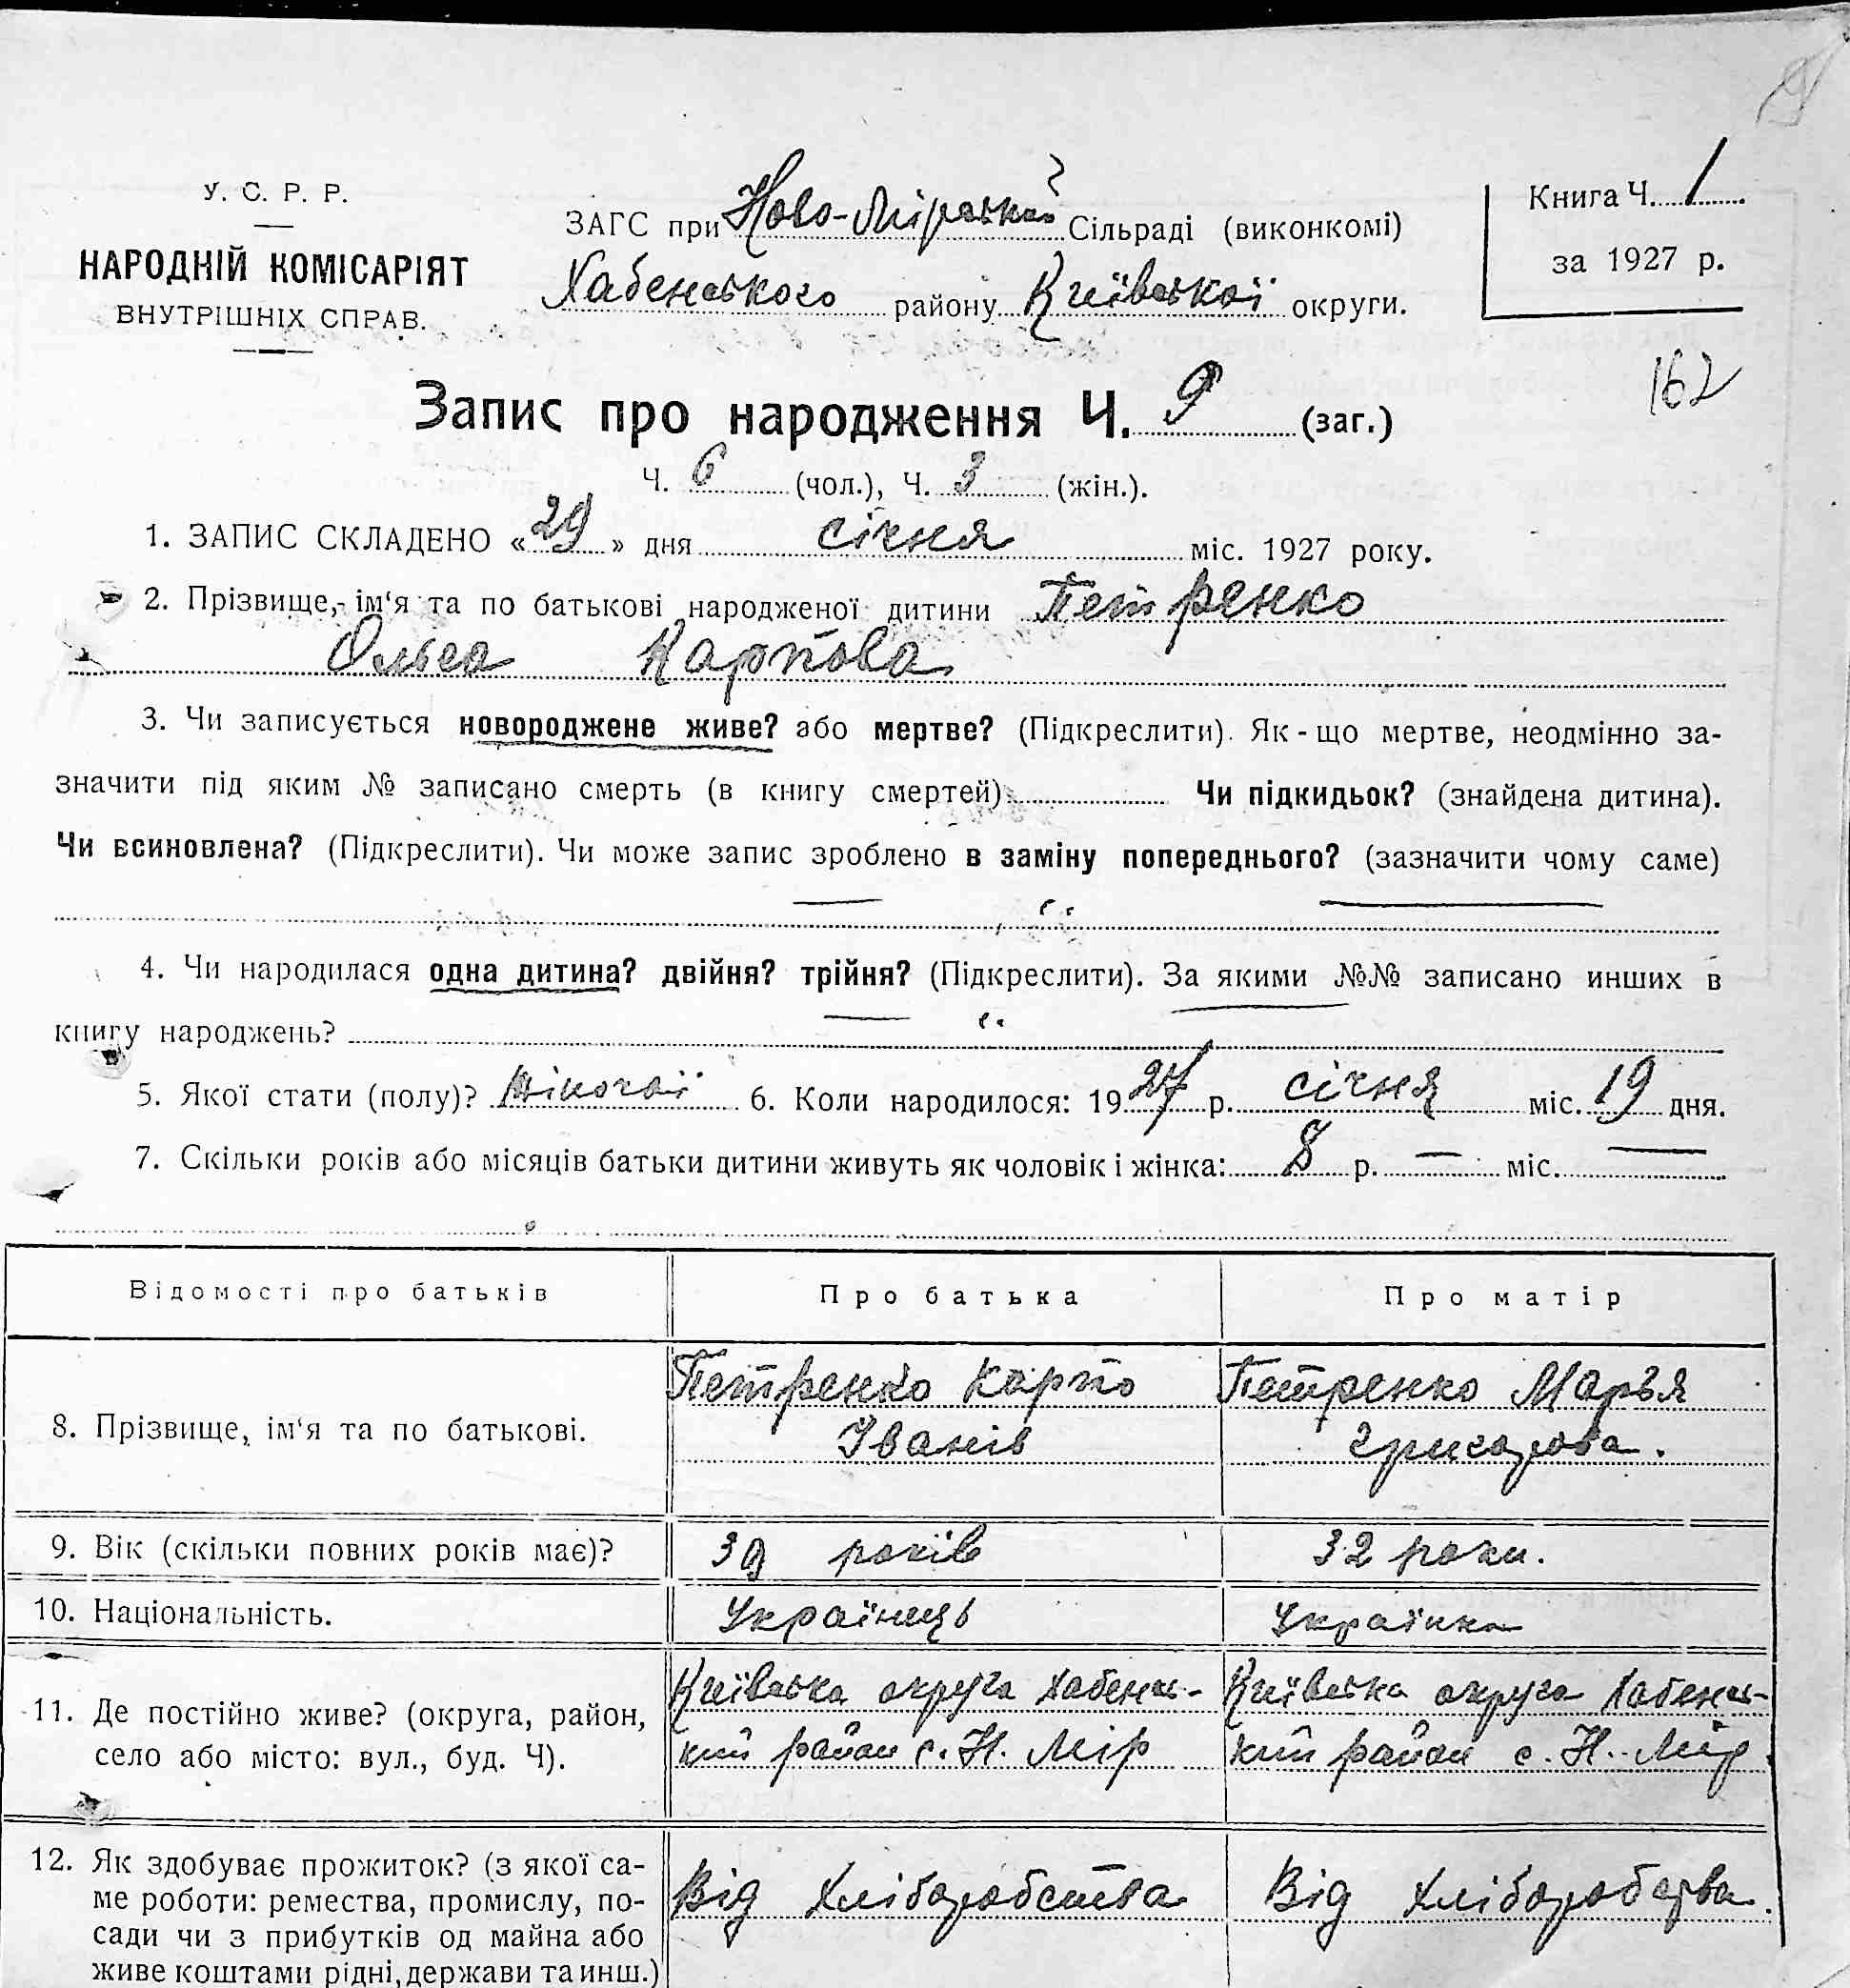 У. С. Р. Р.
НАРОДНІЙ КОМІСАРІЯТ
ВНУТРІШНІХ СПРАВ.
ЗАГС при Ново-Мірській Сільраді (виконкомі)
Хабенського району Київської округи.
Книга Ч. 1
за 1927 р.
162
Запис про народження Ч. 9 (заг.)
Ч. 6 (чол.), Ч. 3 (жін.).
1. ЗАПИС СКЛАДЕНО «29» дня січня міс. 1927 року.
2. Прізвище, ім‘я та по батькові народженої дитини Петренко
Ольга Карпова
3. Чи записується новороджене живе? або мертве? (Підкреслити). Як-що мертве, неодмінно за-
значити під яким № записано смерть (в книгу смертей) Чи підкидьок? (знайдена дитина).
Чи всиновлена? (Підкреслити). Чи може запис зроблено в заміну попереднього? (зазначити чому саме)
4. Чи народилася одна дитина? двійня? трійня? (Підкреслити). За якими №№ записано инших в
книгу народжень?
5. Якої стати (полу)? жіночої 6. Коли народилося: 1927 р. січня міс. 19 дня.
7. Скільки років або місяців батьки дитини живуть як чоловік і жінка: 8 р. — міс. —
Відомості про батьків Про батька Про матір
8. Прізвище, ім‘я та по батькові.
Петренко Карпо
Іванів
Петренко Марья
Григорова.
9. Вік (скільки повних років має)? 39 років 32 роки.
10. Національність. Українець Українка
11. Де постійно живе? (округа, район,
село або місто: вул., буд. Ч).
Київська округа Хабенсь-
кий район с. Н. Мір
Київська округа Хабенсь-
кий район с. Н. Мір.
12. Як здобуває прожиток? (з якої са-
ме роботи: ремества, промислу, по-
сади чи з прибутків од майна або
живе коштами рідні, держави та инш.)
Від Хліборобства
Від Хліборобства.